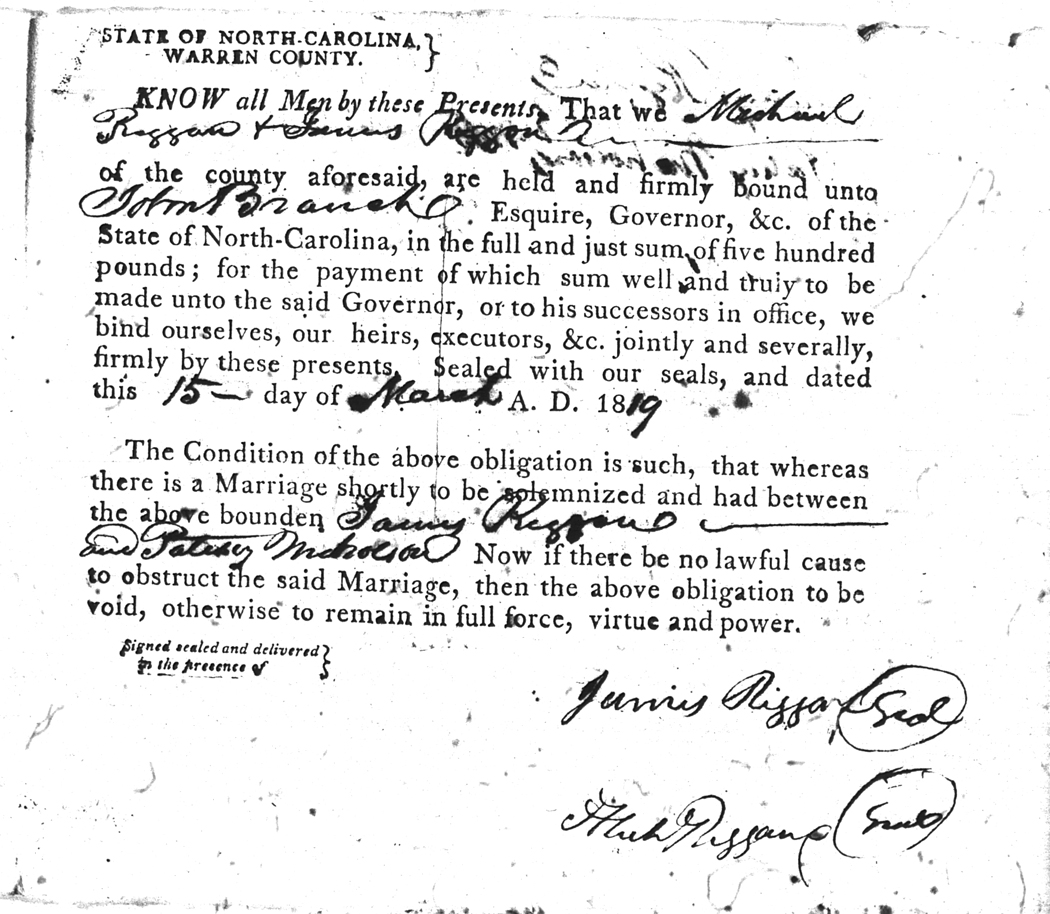 STATE OF NORTH-CAROLINA, }
WARREN COUNTY.
KNOW all Men by these Presents, That we Michael
Riggan & James Riggan
of the county aforesaid, are held and firmly bound unto
John Branch Esquire, Governor, &c. of the
State of North-Carolina, in the full and just sum of five hundred
pounds; for the payment of which sum well and truly to be
made unto the said Governor, or to his successors in office, we
bind ourselves, our heirs, executors, &c. jointly and severally,
firmly by these presents. Sealed with our seals, and dated
this 15 day of March A. D. 1819
The Condition of the above obligation is such, that whereas
there is a Marriage shortly to be solemnized and had between
the above bounden James Riggan
and Patsey Nicholson Now if there be no lawful cause
to obstruct the said Marriage, then the above obligation to be
void, otherwise to remain in full force, virtue and power.
Signed sealed and delivered }
in the presence of
James Riggan Seal
Riggan Seal